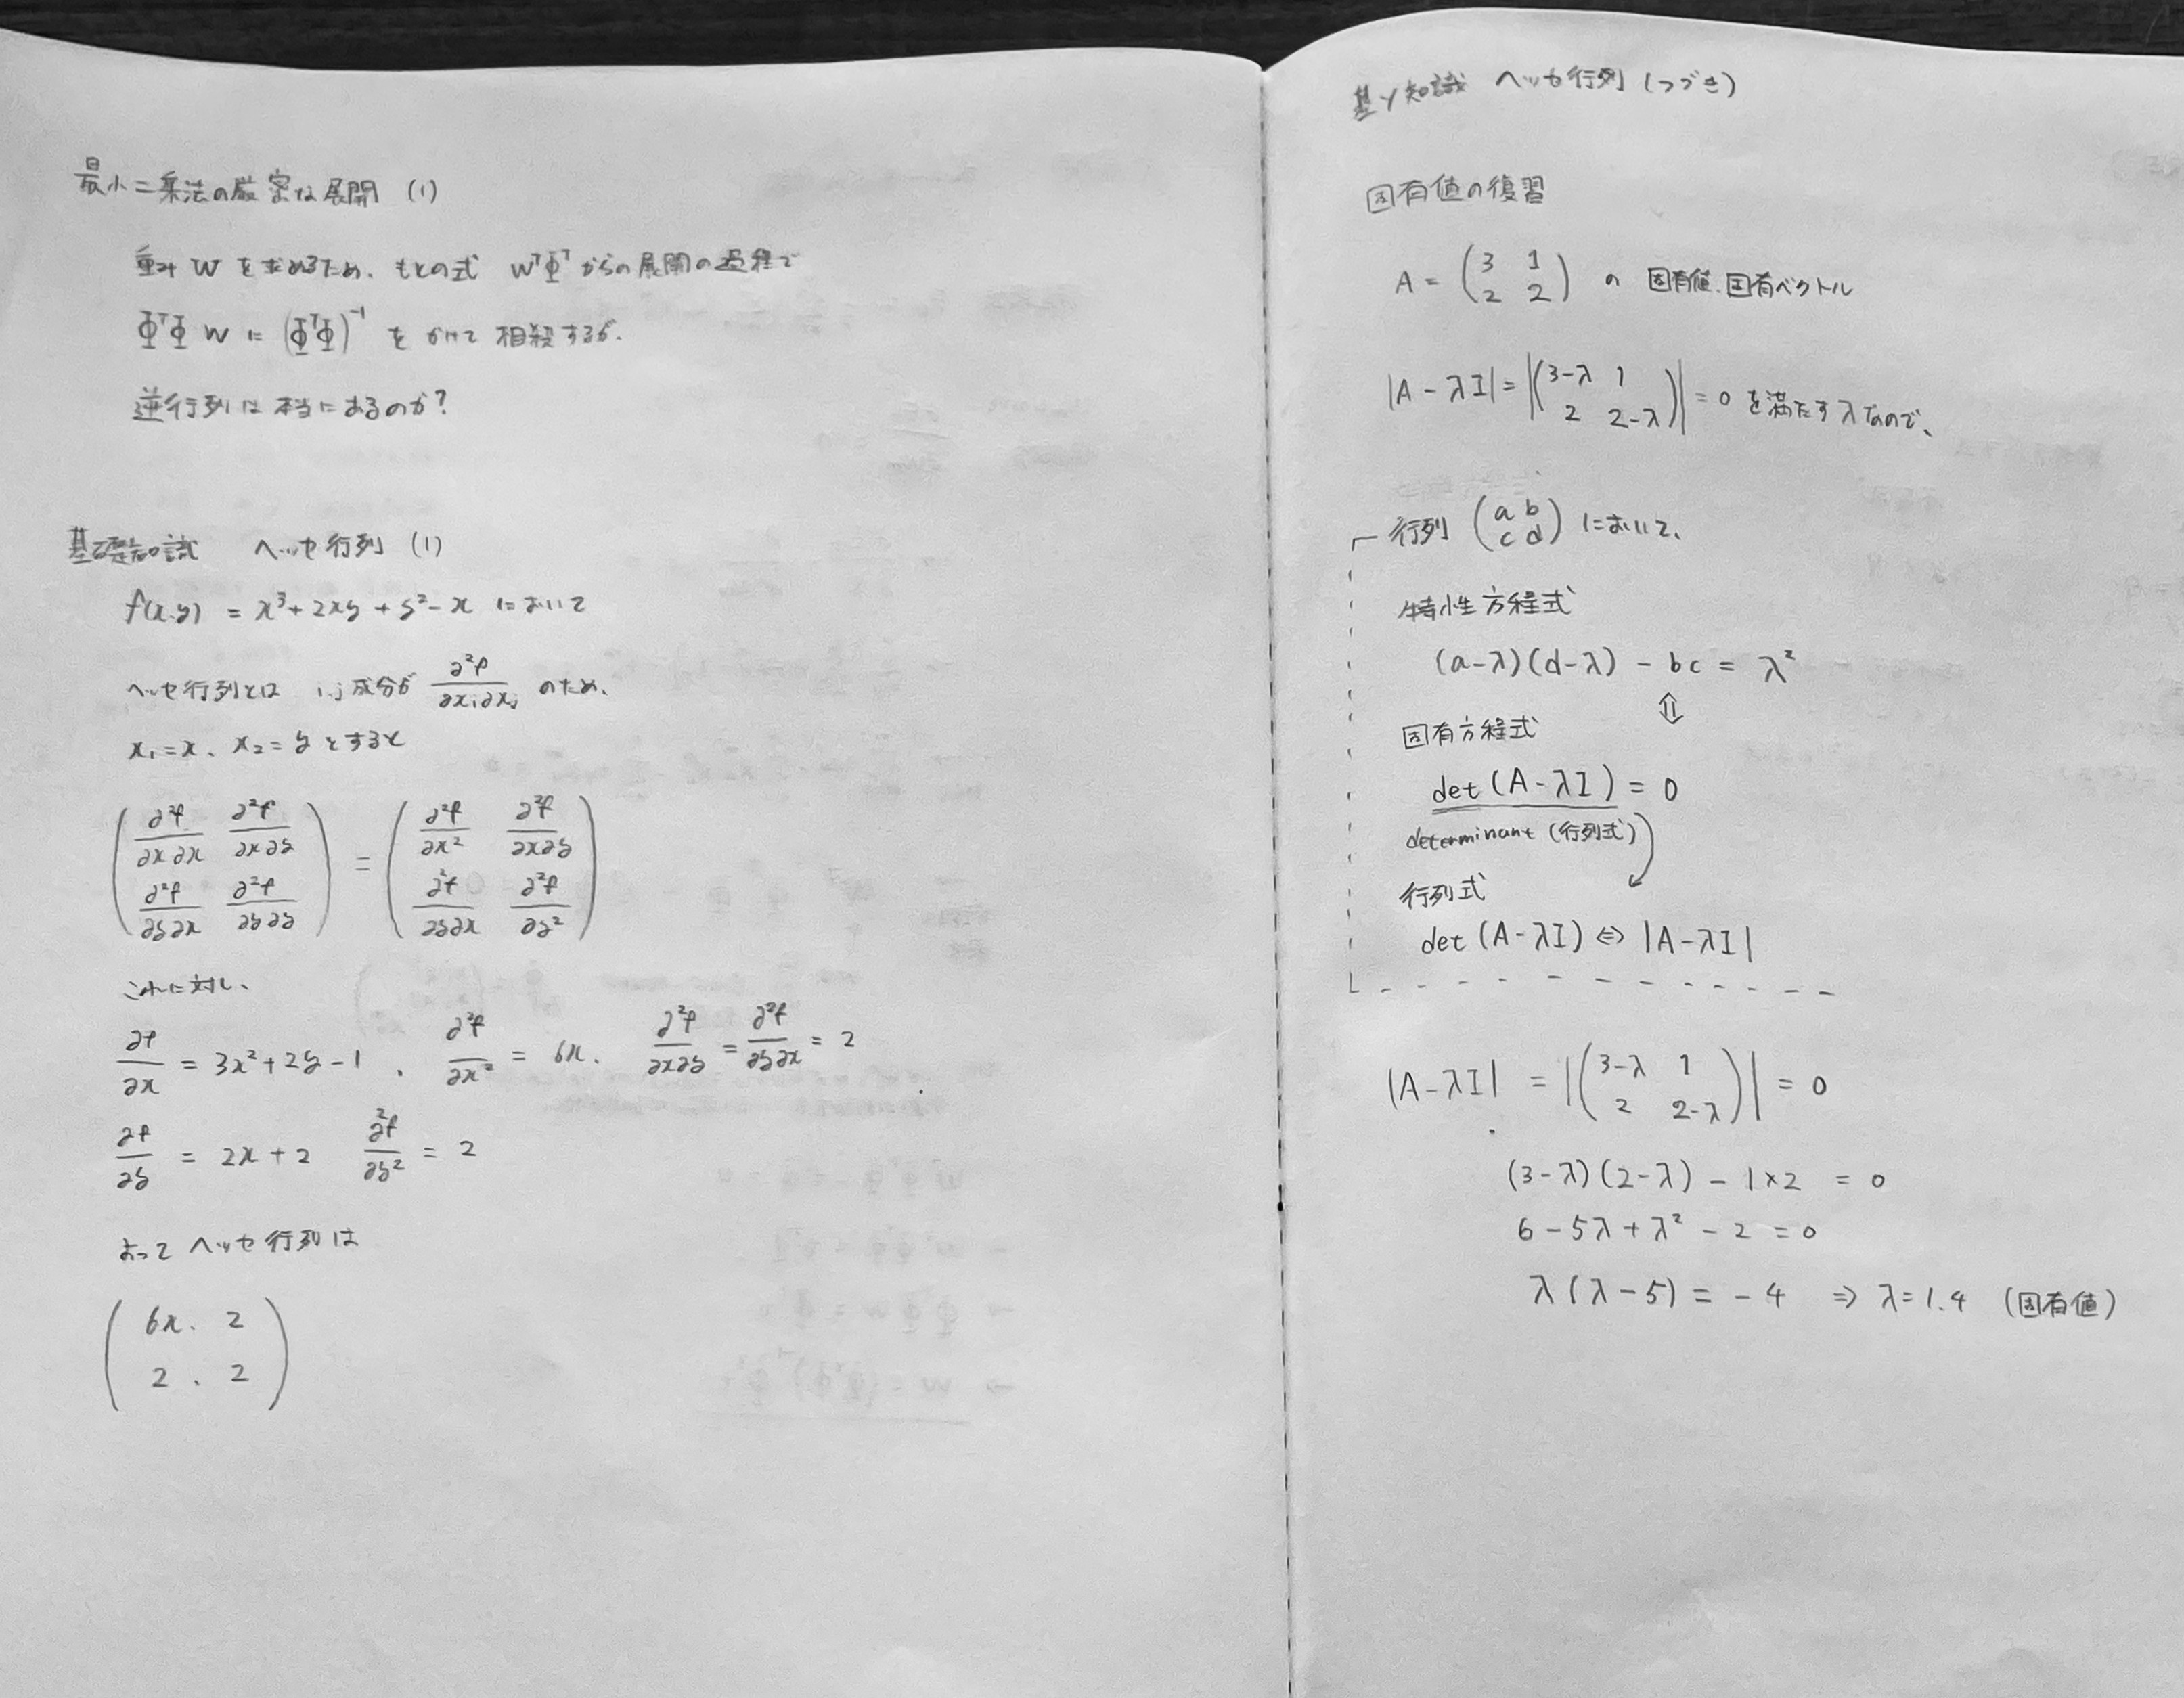 最小二乗法の厳密な展開 (1)
重み W を求めるため、もとの式 WᵀΦᵀ からの展開の過程で
ΦᵀΦ W に (ΦᵀΦ)⁻¹ を かけて 相殺するが.
逆行列は 本当にあるのか?
基礎知識 ヘッセ行列 (1)
f(x,y) = x³ + 2xy + y² - x において
ヘッセ行列とは i,j 成分が ∂²f/∂xᵢ∂xⱼ のため、
x₁ = x、 x₂ = y とすると
( ∂²f/∂x∂x ∂²f/∂x∂y ) = ( ∂²f/∂x² ∂²f/∂x∂y )
( ∂²f/∂y∂x ∂²f/∂y∂y ) ( ∂²f/∂y∂x ∂²f/∂y² )
これに対し、
∂f/∂x = 3x² + 2y - 1 、 ∂²f/∂x² = 6x、 ∂²f/∂x∂y = ∂²f/∂y∂x = 2
∂f/∂y = 2x + 2 ∂²f/∂y² = 2
よって ヘッセ行列は
( 6x、 2 )
( 2 、 2 )
知識 ヘッセ行列 (つづき)
固有値の復習
A = ( 3 1 ) の 固有値、固有ベクトル
( 2 2 )
|A - λI| = |( 3-λ 1 )| = 0 を満たす λ なので、
|( 2 2-λ )|
行列 ( a b ) において、
( c d )
特性方程式
(a-λ)(d-λ) - bc = λ²
⇕
固有方程式
det (A-λI) = 0
determinant (行列式)
行列式
det (A-λI) ⇔ |A-λI|
|A-λI| = |( 3-λ 1 )| = 0
|( 2 2-λ )|
(3-λ)(2-λ) - 1×2 = 0
6 - 5λ + λ² - 2 = 0
λ(λ-5) = -4 ⇒ λ = 1.4 (固有値)